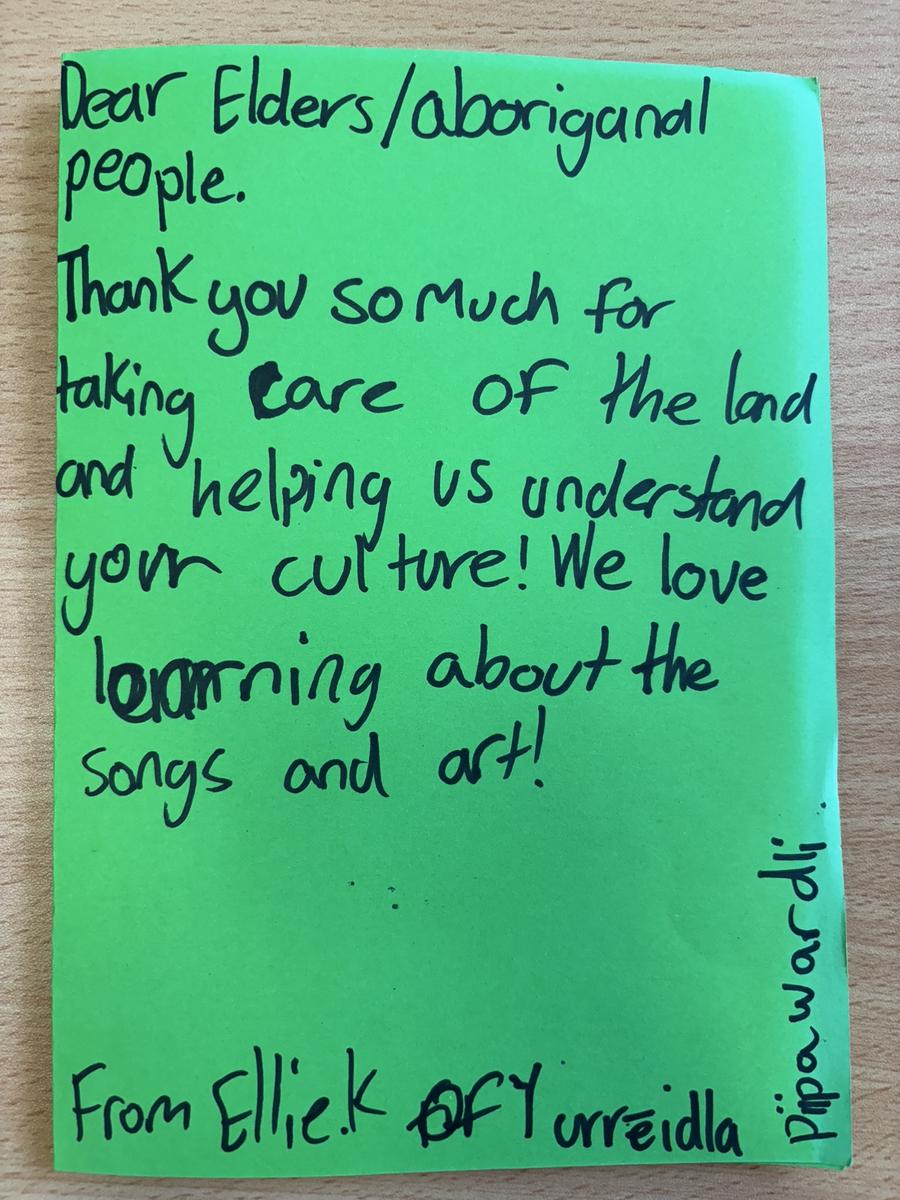 Dear Elders/aboriganal
people.
Thank you so much for
taking care of the land
and helping us understand
your culture! We love
learning about the
songs and art!
From Ellie.K OF Yurreidla
Piipawardli